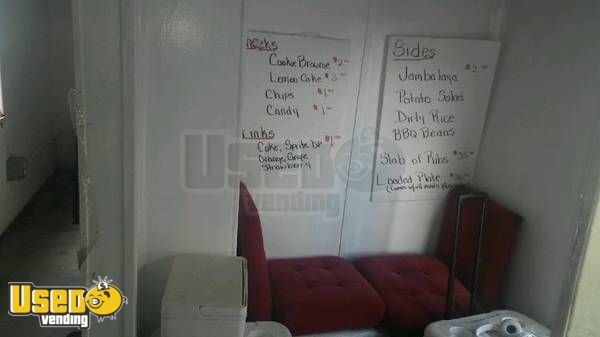 Cookie Brownie $2.00
Lemon Cake $3.00
Chips $1.00
Candy $1.00
Coke, Sprite DP $1.00
Orange, Grape
Strawberry
Sides
Jambalaya $2.00
Potato Salad
Dirty Rice
BBQ Beans
Slab of Ribs
Loaded Plate
Used
vending
Used
vending